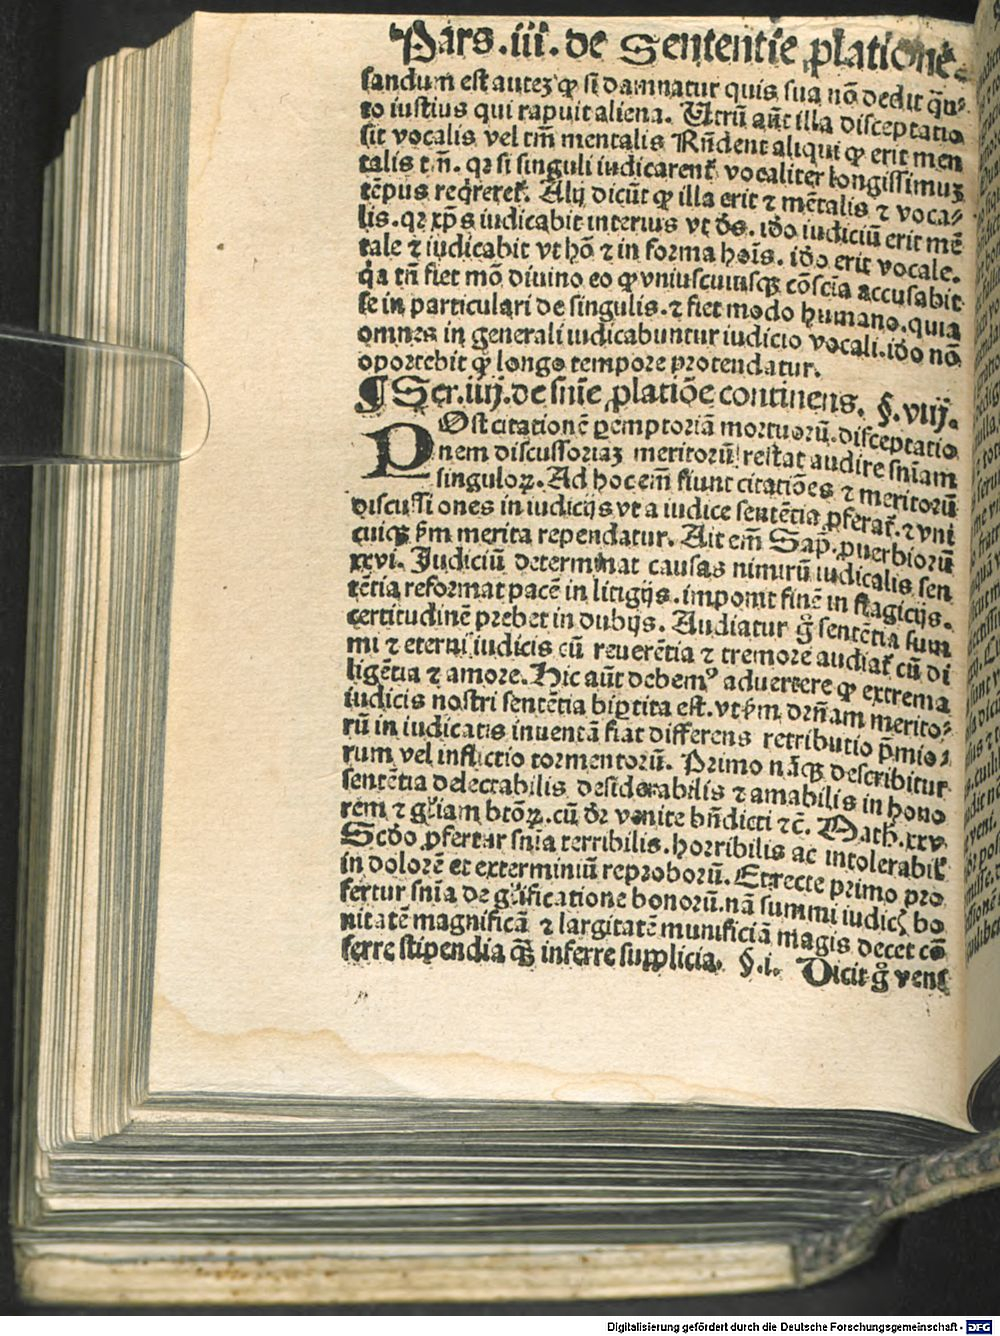 Pars .iii. de Sententie ꝓlatione
sandum est autez ꝙ si damnatur quis sua nō dedit q̄n-
to iustius qui rapuit aliena. Utrū aūt illa disceptatio
sit vocalis vel tm̄ mentalis Rn̄dent aliqui ꝙ erit men
talis tm̄. qꝛ si singuli iudicarent᷑ vocaliter longissimuʒ
tēpus reqreret᷑. Alij dicūt ꝙ illa erit ⁊ mētalis ⁊ voca-
lis. qꝛ xp̄s iudicabit interius vt de᷒. iō iudiciū erit mē
tale ⁊ iudicabit vt hō ⁊ in forma hoīs. iō erit vocale.
q̄a tn̄ fiet mō diuino eo ꝙ vniuscuiusqꝫ cōscīa accusabit
se in particulari de singulis. ⁊ fiet modo humano. quia
omnes in generali iudicabuntur iudicio vocali. iō nō
oportebit ꝙ longo tempore protendatur.
¶ Ser. iiij. de snīe ꝓlatiōe continens. §. viij.
POst citationē ꝑemptoriā mortuorū. disceptatio
nem discussoriaʒ meritorū restat audire snīam
singuloꝝ. Ad hoc em̄ fiunt citatiōes ⁊ meritorū
discussiones in iudicijs vt a iudice sentētia ꝓferat᷑. ⁊ vni
cuiqꝫ ẜm merita rependatur. Ait em̄ Sap̄. ꝓuerbiorū
xxvi. Judiciū determinat causas nimirū iudicalis sen
tētia reformat pacē in litigijs. imponit finē in flagicijs.
certitudinē prebet in dubijs. Audiatur g̊ sentētia sum
mi ⁊ eterni iudicis cū reuerētia ⁊ tremore audiat᷑ cū di
ligētia ⁊ amore. Hic aūt debem᷒ aduertere ꝙ extrema
iudicis nostri sentētia biꝑtita est. vt ẜm drn̄am merito-
rū in iudicatis inuentā fiat differens retributio p̄mio-
rum vel inflictio tormentorū. Primo nāqꝫ describitur
sentētia delectabilis desiderabilis ⁊ amabilis in hono
rem ⁊ gl̄iam btōꝝ. cū dr̄ venite bn̄dicti ⁊c̄. Math. xxv
Scd̄o ꝓfertur snīa terribilis. horribilis ac intolerabil᷑
in dolorē et exterminiū reproborū. Et recte primo pro
fertur snīa de gl̄ificatione bonorū. nā summi iudicꝭ bo
nitatē magnificā ⁊ largitatē munificiā magis decet cō
ferre stipendia qꝫ̄ inferre supplicia. §.i. Dicit g̊ veni
Digitalisierung gefördert durch die Deutsche Forschungsgemeinschaft - DFG